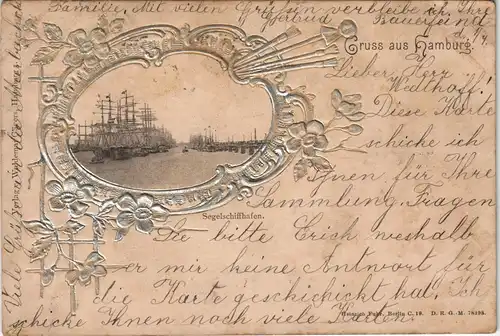 Familie. Mit vielen Grüßen verbleibe ich Ihre
Gertrud Bauerfeind
Gruss aus Hamburg.
Lieber Herr
Westhoff.
Diese Karte
schicke ich
Ihnen für Ihre
Sammlung. Fragen
Segelschiffhafen.
Sie bitte Erich weshalb
er mir keine Antwort für
die Karte geschickt hat. Ich
schicke Ihnen noch viele Karten.
Heinrich Berlin C. 19. D. R. G. M. 78395.
Viele Grüße